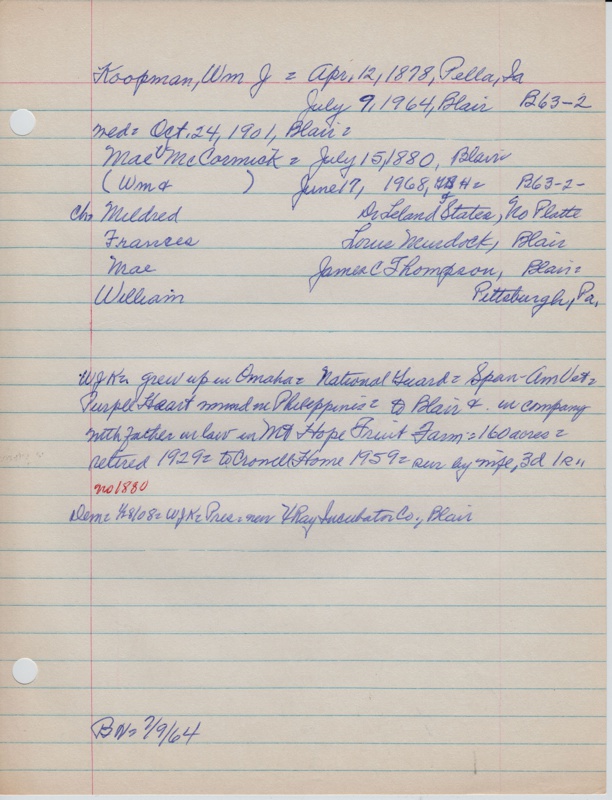 Koopman, Wm J = Apr, 12, 1878, Pella, Ia
July 9, 1964, Blair B63-2
med = Oct. 24, 1901, Blair =
Mae V McCormick = July 15, 1880, Blair
(Wm & ) June 17, 1968, B63-2-
ch= Mildred Dr Leland States, No Platte
Frances Louis Murdock, Blair
Mae James C Thompson, Blair=
William Pittsburgh, Pa.
WJK= grew up in Omaha = National Guard = Span-Am Vet =
Purple Heart wound in Philippinis = to Blair & . in company
with father in law in Mt Hope Fruit Farm = 160 acres =
retired 1929 = to Crowell Home 1959 = sur by wife, 3d 1s "
no 1880
Dem= 1/28/08= WJK= Pres. = new X Ray Incubator Co., Blair
BN= 7/9/64